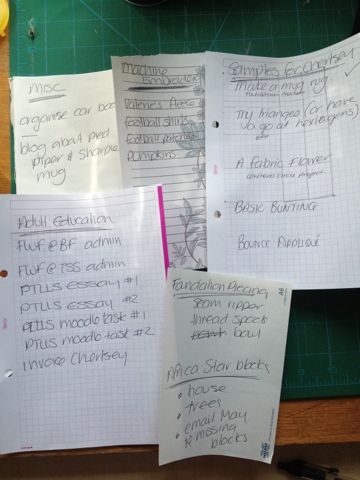 MISC
organise car boo
blog about pied
piper & Sharpie
mug
Machine
Embroidery
Valerie's fleece
football shirts
football pitches
pumpkins
Samples for Chertsey
make a mug rug
Try triangles (or have
a go at hexagons)
A Fabric Flower
BASIC BUNTING
BOUNCE APPLIQUÉ
Adult Education
FWF @ BF admin
FWF @ TSS admin
PTLLS ESSAY #1
PTLLS ESSAY #2
PTLLS moodle task #1
PTLLS moodle task #2
Invoice Chertsey
Foundation Piecing
seam ripper
thread spools
bowl
Africa Star blocks
house
trees
email May
re missing
blocks